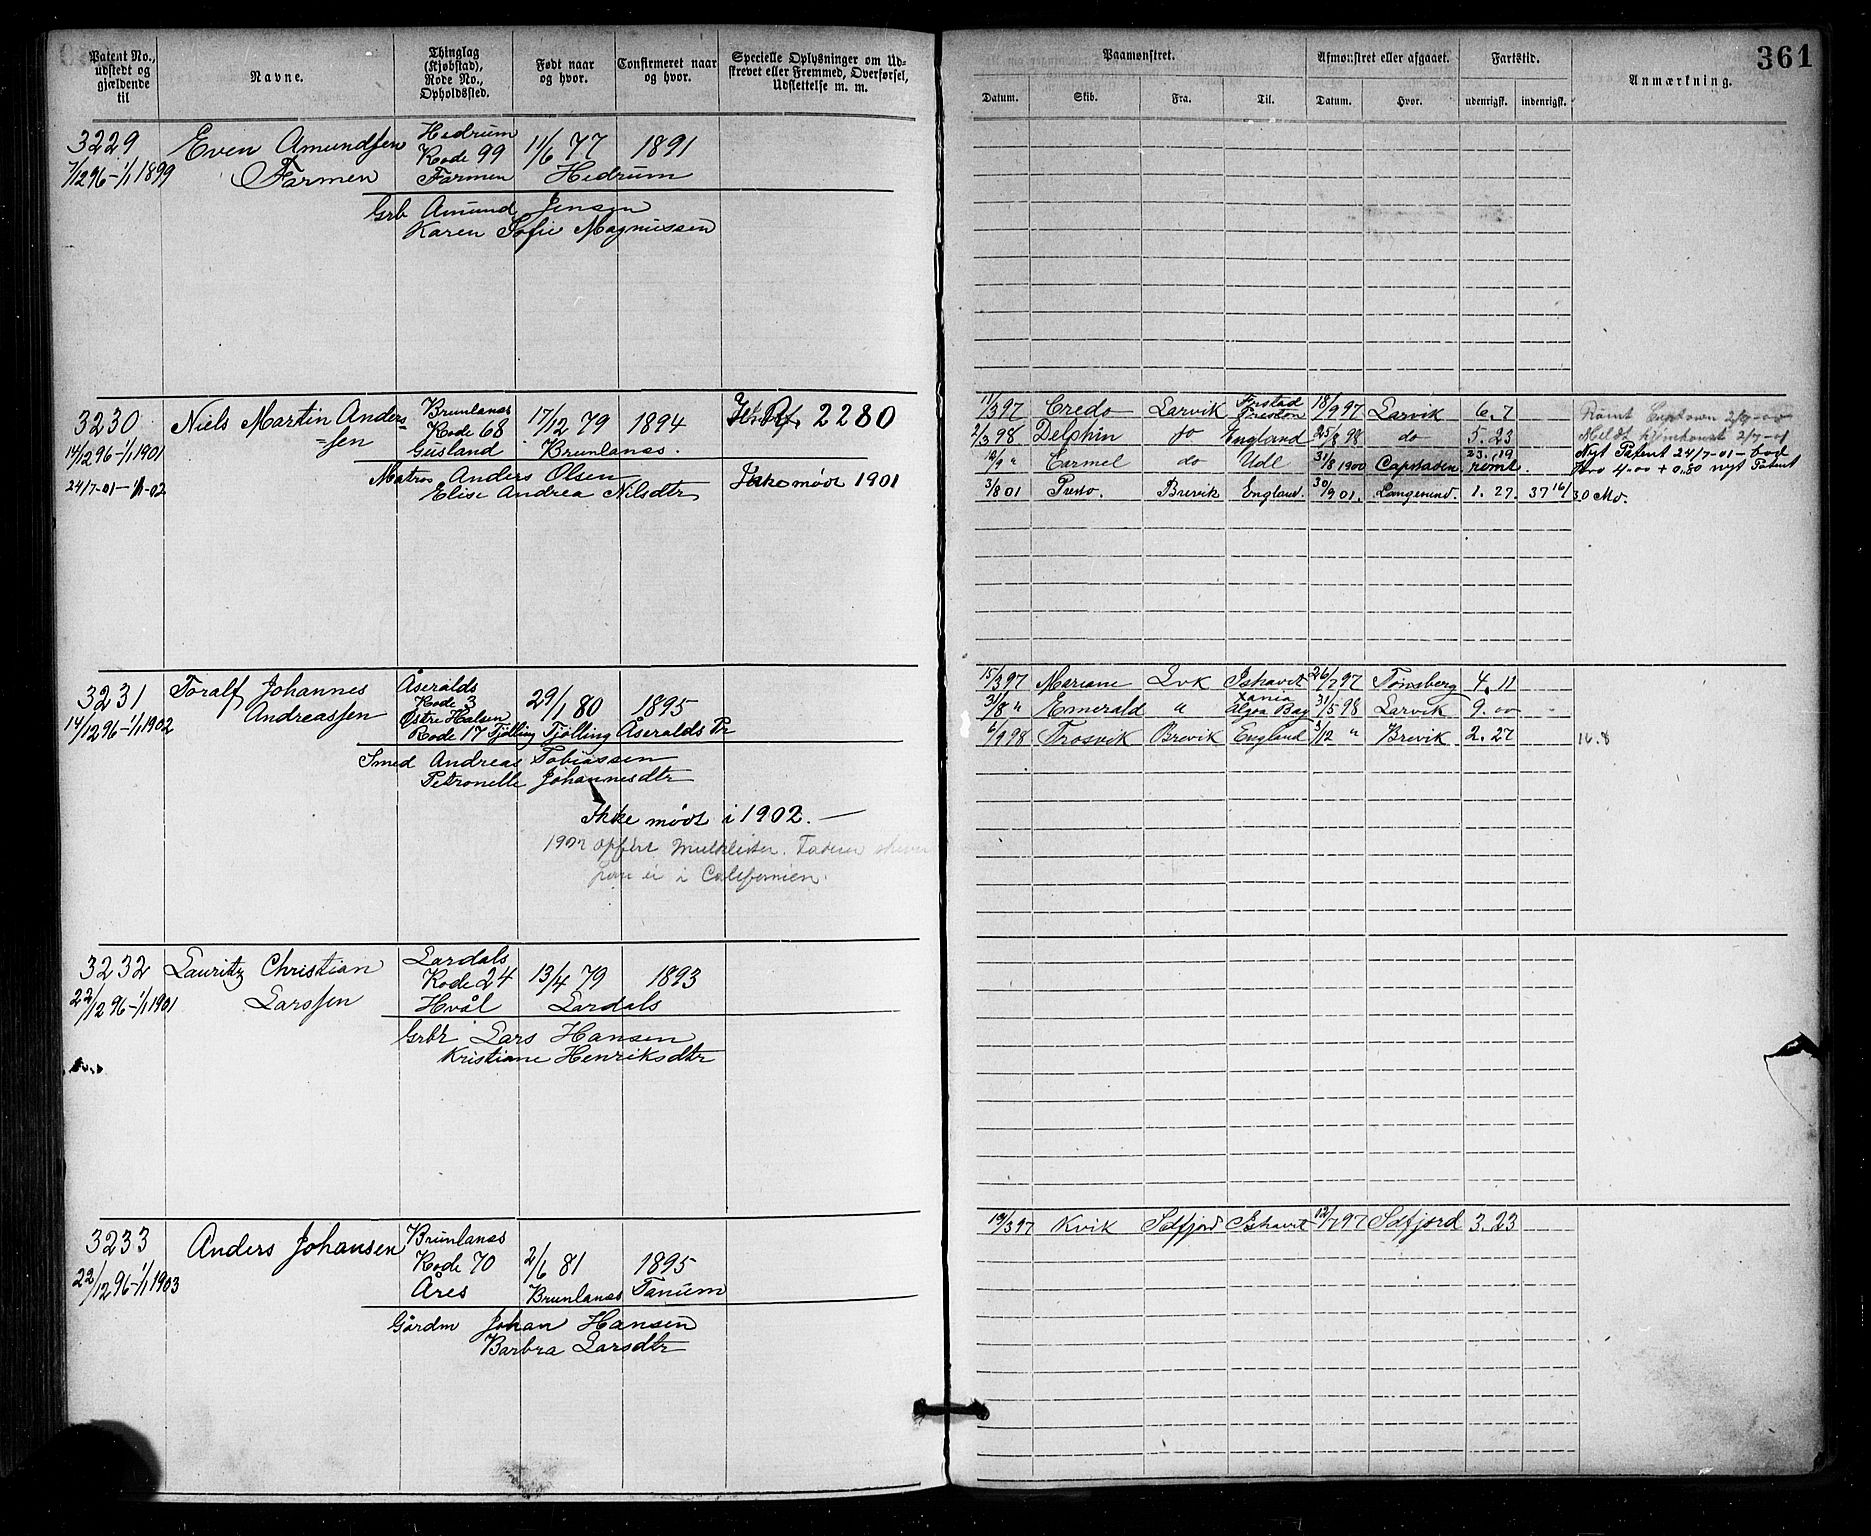 Patent No., udstedt og gjældende til
Navne.
Thinglag (Kjøbstad), Rode No., Opholdssted.
Født naar og hvor.
Confirmeret naar og hvor.
Specielle Oplysninger om Udskrevet eller Fremmed, Overførsel, Udslettelse m. m.
Paamønstret.
Afmønstret eller afgaaet.
Fartstid.
Anmærkning.
361
Datum. Skib. Fra. Til. Datum. Hvor. udenrigsk. indenrigsk.
3229 Even Amundsen Hedrum 11/6 77 1891
7/12 96 – 1/1 1899 Farmen Rode 99 Hedrum
Farmen
Grb Amund Jensen
Karen Sofie Magnussen
3230 Niels Martin Anders= Brunlanes 17/12 79 1894 2280
=sen Rode 68 Brunlanes.
14/12 96 – 1/1 1901 Gusland
24/7-01 – 1/1-02
Matros Anders Olsen Ikke mødt 1901
Elise Andrea Nilsdtr
11/3 97 Credo Larvik Frstad Preston 18/9 97 Larvik 6. 7
2/3 98 Delphin do England 25/8 98 do 5. 23
Carmel do Udl 31/8 1900 Capstaden 23. 19 rømt.
3/8 01 Brevik England. 30/9 01. Langesund. 1. 27. 37 16/30 Mo.
Rømt 2/9-00
Meldt 2/7-01
Nyt Patent 24/7-01 –
4.00 + 0.80 nyt Patent
3231 Toralf Johannes Åseralds 29/1 80 1895
Andreassen Rode 3
14/12 96 – 1/1 1902 Østre Halsen
Rode 17 Tjølling Tjølling Åseralds Pr
Smed Andreas Tobiassen
Petronelle Johannesdtr
Ikke mødt i 1902. –
i Californien.
15/3 97 Mariane Lvk Ishavet 26/7 97 Tønsberg 4. 11
31/8 " Emerald " Xania Algoa Bay 31/5 98 Larvik 9. 00
6/9 98 Frosvik Brevik England /12 " Brevik 2. 27
16.8
3232 Lauritz Christian Lardals 13/4 79 1893
22/12 96 – 1/1 1901 Larssen Rode 24 Lardals
Hvål
Grbr Lars Hansen
Kristiane Henriksdtr
3233 Anders Johansen Brunlanes 2/6 81 1895
22/12 96 – 1/1 1903 Rode 70 Brunlanes Tanum
Åres
Gårdm Johan Hansen
Barbra Larsdtr
19/3 97 Kvik Sdfjord Ishavet 12/7 97 Sdfjord 3. 23